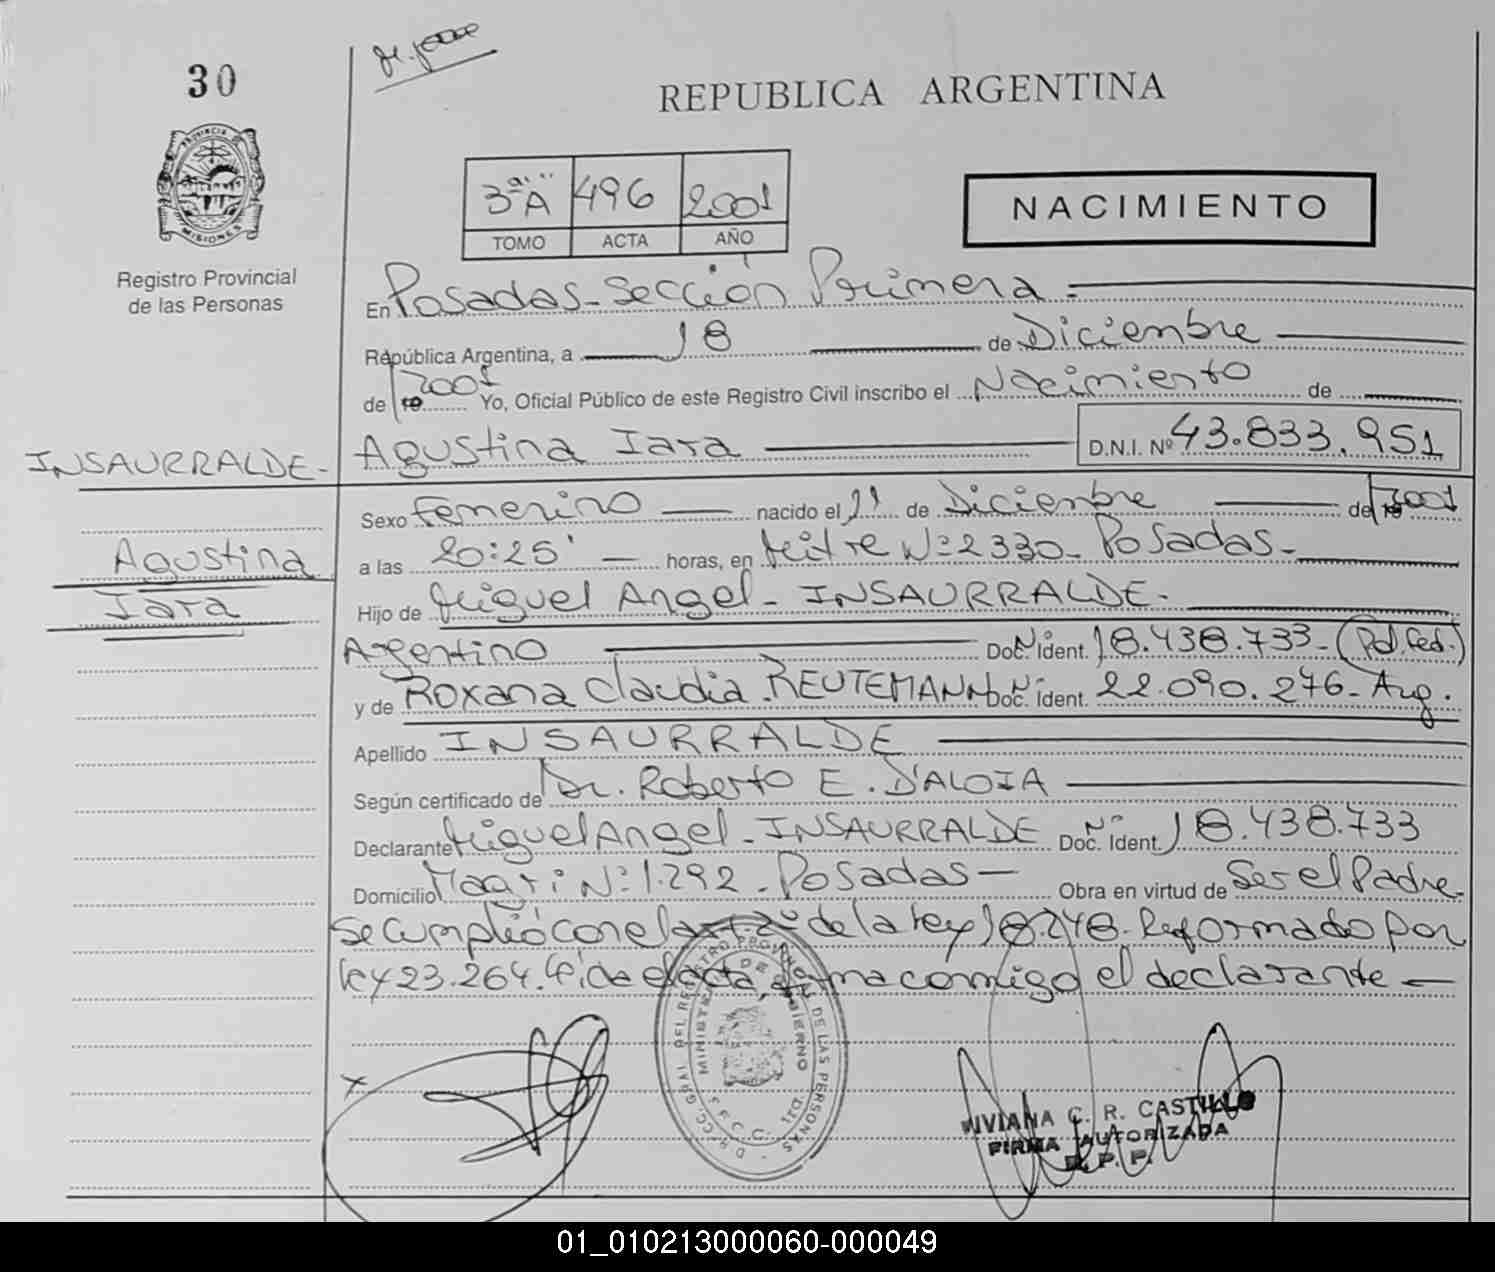 30
REPUBLICA ARGENTINA
PROVINCIA DE
MISIONES
Registro Provincial
de las Personas
3ª "A" 496 2001
TOMO ACTA AÑO
NACIMIENTO
En Posadas - Sección Primera -
República Argentina, a 18 de Diciembre
de 2001 Yo, Oficial Público de este Registro Civil inscribo el Nacimiento de
INSAURRALDE - Agustina Iara D.N.I. Nº 43.833.951
Sexo Femenino nacido el 11 de Diciembre de 2001
Agustina
a las 20:25' horas, en Mitre Nº 2330 - Posadas -
Iara
Hijo de Miguel Angel - INSAURRALDE -
Argentino Doc. Nº Ident. 18.438.733 - (Pol. Fed.)
y de Roxana Claudia REUTEMANN Doc. Nº Ident. 22.090.276 - Arg.
Apellido INSAURRALDE
Según certificado de Dr. Roberto E. D'ALOIA
Declarante Miguel Angel - INSAURRALDE Doc. Nº Ident. 18.438.733
Domicilio Magri Nº 1.292 - Posadas - Obra en virtud de Ser el Padre -
Se cumplió con el art. 2º de la ley 18.248 - Reformado por
ley 23.264. Leída el acta, firma conmigo el declarante -
X
DE LAS PERSONAS
MINISTERIO DE GOBIERNO
VIVIANA C. R. CASTILLO
FIRMA AUTORIZADA
R. P. P.
01_010213000060-000049